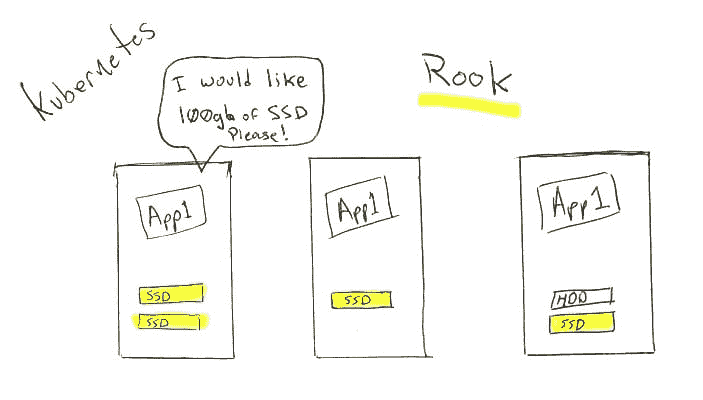 Kubernetes
Rook
I would like
100gb of SSD
Please!
App1
SSD
SSD
App1
SSD
App1
HDD
SSD